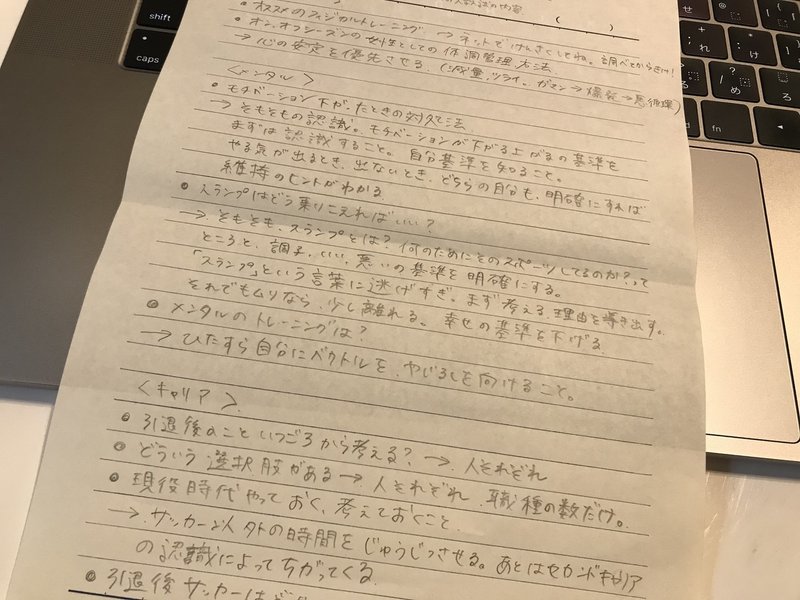 の内容 (     )
• オススメのフィジカルトレーニング → ネットでけんさくしてね。調べてからきけ!
• オン、オフシーズンの女性としての体調管理方法
→ 心の安定を優先させる。(減量、ツライ、ガマン→爆発→悪循環)
〈メンタル〉
• モチベーション下がったときの対処法
→ そもそもの認識。モチベーションが下がる上がるの基準を
まずは認識すること。自分基準を知ること。
やる気が出るとき、出ないとき、どちらの自分も、明確にすれば
維持のヒントがわかる
• スランプはどう乗りこえればいい?
→ そもそも、スランプとは?何のためにそのスポーツしてるのか?って
ところと、調子、いい、悪いの基準を明確にする。
「スランプ」という言葉に逃げすぎ。まず考える、理由を導き出す。
それでもムリなら、少し離れる。幸せの基準を下げる
• メンタルのトレーニングは?
→ ひたすら自分にベクトルを、やじるしを向けること。
〈キャリア〉
• 引退後のこといつごろから考える? → 人それぞれ
• どういう選択肢がある → 人それぞれ、職種の数だけ。
• 現役時代やっておく、考えておくこと
→ サッカー以外の時間をじゅうじつさせる。あとはセカンドキャリア
の認識によってちがってくる
• 引退後サッカーは
shift
caps
fn